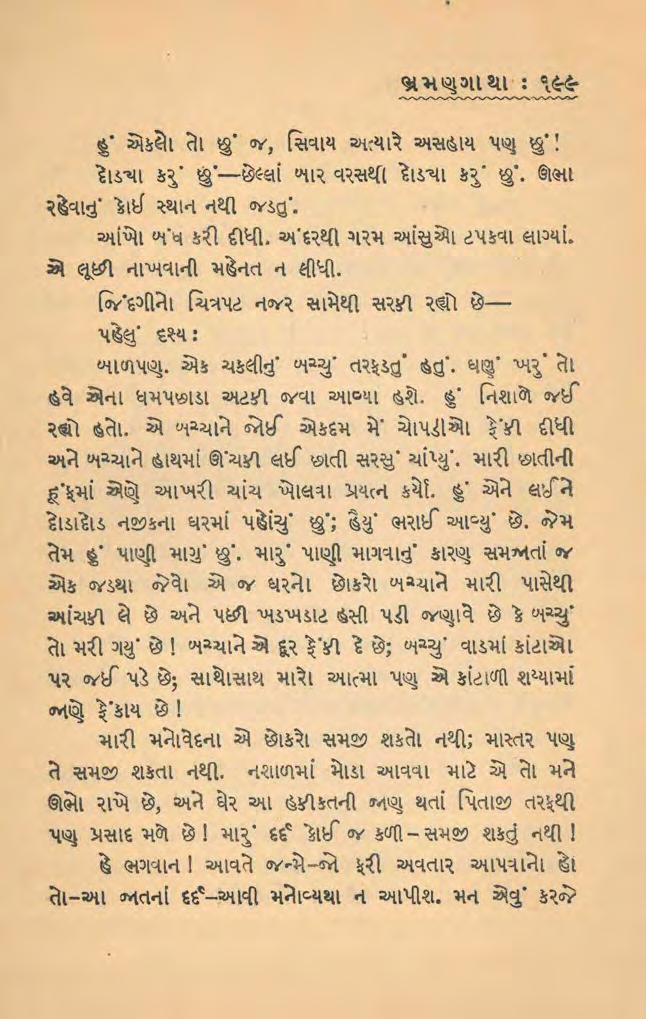 ભ્રમણગાથા : ૧૯૯
હું એકલો તો છું જ, સિવાય અત્યારે અસહાય પણ છું!
દોડ્યા કરું છું—છેલ્લાં બાર વરસથી દોડ્યા કરું છું. ઊભા
રહેવાનું કોઈ સ્થાન નથી જડતું.
આંખો બંધ કરી દીધી. અંદરથી ગરમ આંસુઓ ટપકવા લાગ્યાં.
એ લૂછી નાખવાની મહેનત ન લીધી.
જિંદગીનો ચિત્રપટ નજર સામેથી સરકી રહ્યો છે—
પહેલું દૃશ્ય :
બાળપણ. એક ચકલીનું બચ્ચું તરફડતું હતું. ઘણું ખરું તો
હવે એના ધમપછાડા અટકી જવા આવ્યા હશે. હું નિશાળે જઈ
રહ્યો હતો. એ બચ્ચાને જોઈ એકદમ મેં ચોપડીઓ ફેંકી દીધી
અને બચ્ચાને હાથમાં ઊંચકી લઈ છાતી સરસું ચાંપ્યું. મારી છાતીની
હૂંફમાં એણે આખરી ચાંચ ખોલવા પ્રયત્ન કર્યો. હું એને લઈને
દોડાદોડ નજીકના ઘરમાં પહોંચું છું; હૈયું ભરાઈ આવ્યું છે. જેમ
તેમ હું પાણી માગું છું. મારું પાણી માગવાનું કારણ સમજાતાં જ
એક જડથા જેવો એ જ ઘરનો છોકરો બચ્ચાને મારી પાસેથી
આંચકી લે છે અને પછી ખડખડાટ હસી પડી જણાવે છે કે બચ્ચું
તો મરી ગયું છે! બચ્ચાને એ દૂર ફેંકી દે છે; બચ્ચું વાડમાં કાંટાઓ
પર જઈ પડે છે; સાથોસાથ મારો આત્મા પણ એ કાંટાળી શય્યામાં
જાણે ફેંકાય છે!
મારી મનોવેદના એ છોકરો સમજી શકતો નથી; માસ્તર પણ
તે સમજી શકતા નથી. નશાળમાં મોડા આવવા માટે એ તો મને
ઊભો રાખે છે, અને ઘેર આ હકીકતની જાણ થતાં પિતાજી તરફથી
પણ પ્રસાદ મળે છે! મારું દર્દ કોઈ જ કળી–સમજી શકતું નથી!
હે ભગવાન! આવતે જન્મે–જો ફરી અવતાર આપવાનો હો
તો–આ જાતનાં દર્દ–આવી મનોવ્યથા ન આપીશ. મન એવું કરજે